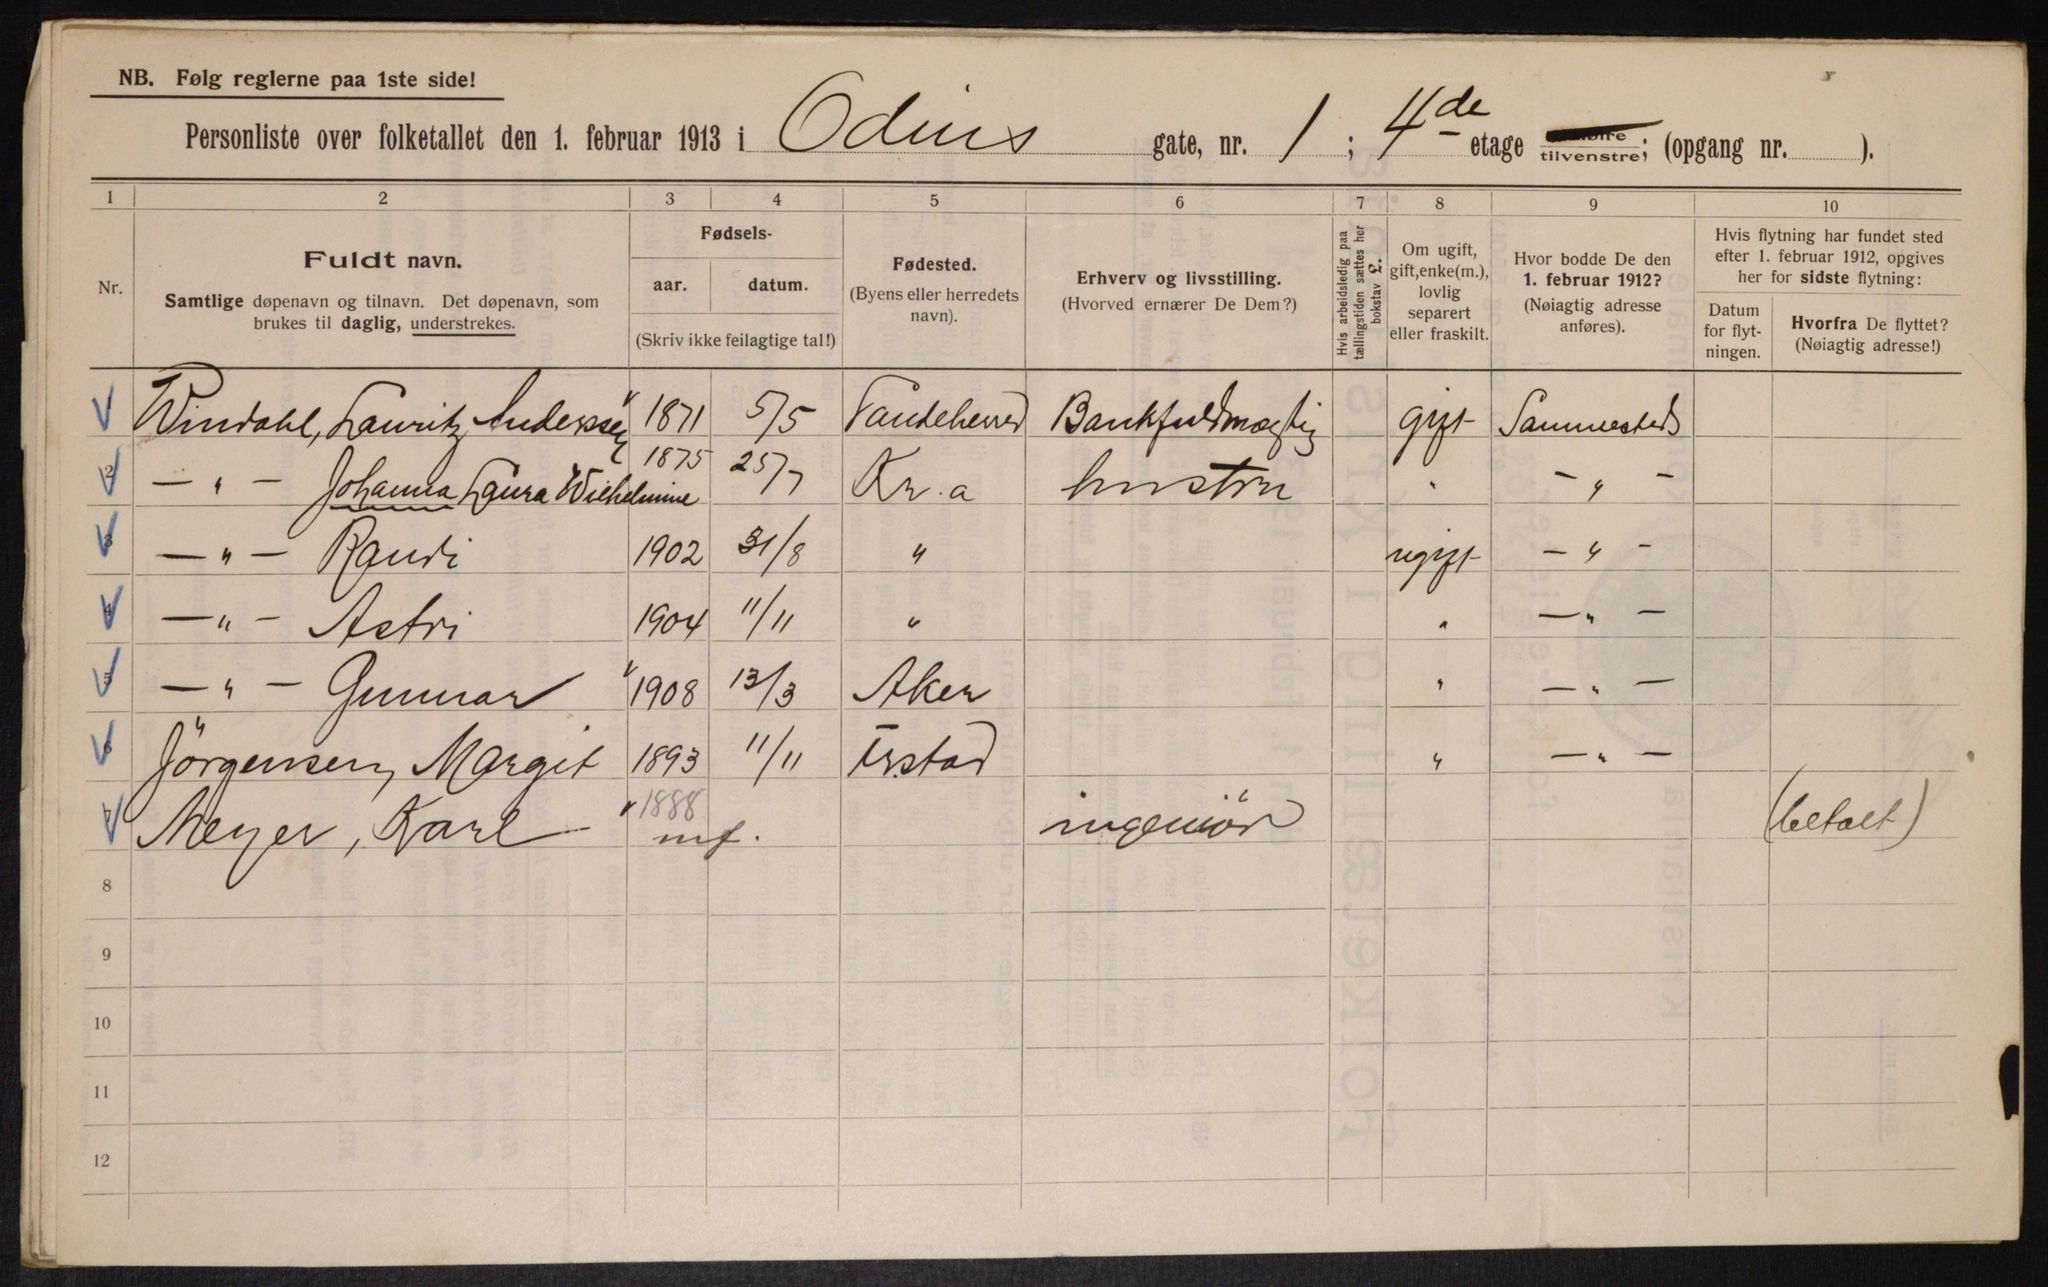 NB. Følg reglerne paa 1ste side!
Personliste over folketallet den 1. februar 1913 i Odins gate, nr. 1 ; 4de etage tilvenstre; (opgang nr. ).
1 2 3 4 5 6 7 8 9 10
Nr.
Fuldt navn.
Samtlige døpenavn og tilnavn. Det døpenavn, som
brukes til daglig, understrekes.
Fødsels-
aar. datum.
(Skriv ikke feilagtige tal!)
Fødested.
(Byens eller herredets
navn).
Erhverv og livsstilling.
(Hvorved ernærer De Dem?)
Hvis arbeidsledig paa
tællingstiden sættes her
bokstav L.
Om ugift,
gift, enke(m.),
lovlig
separert
eller fraskilt.
Hvor bodde De den
1. februar 1912?
(Nøiagtig adresse
anføres).
Hvis flytning har fundet sted
efter 1. februar 1912, opgives
her for sidste flytning:
Datum
for flyt-
ningen.
Hvorfra De flyttet?
(Nøiagtig adresse!)
1 Windahl, Lauritz Anderssen 1871 5/5 Sandeherred Bankfuldmægtig gift Sammesteds
2 — " — Johanna Laura Wilhelmine 1875 25/7 Kr.a hustru " — " —
3 — " — Randi 1902 31/8 " ugift — " —
4 — " — Astri 1904 11/11 " " — " —
5 — " — Gunnar 1908 13/3 Aker " — " —
6 Jörgensen, Margit 1893 11/11 " — " —
7 Meyer, Karl 1888 ingeniör (betalt)
mf.
8
9
10
11
12